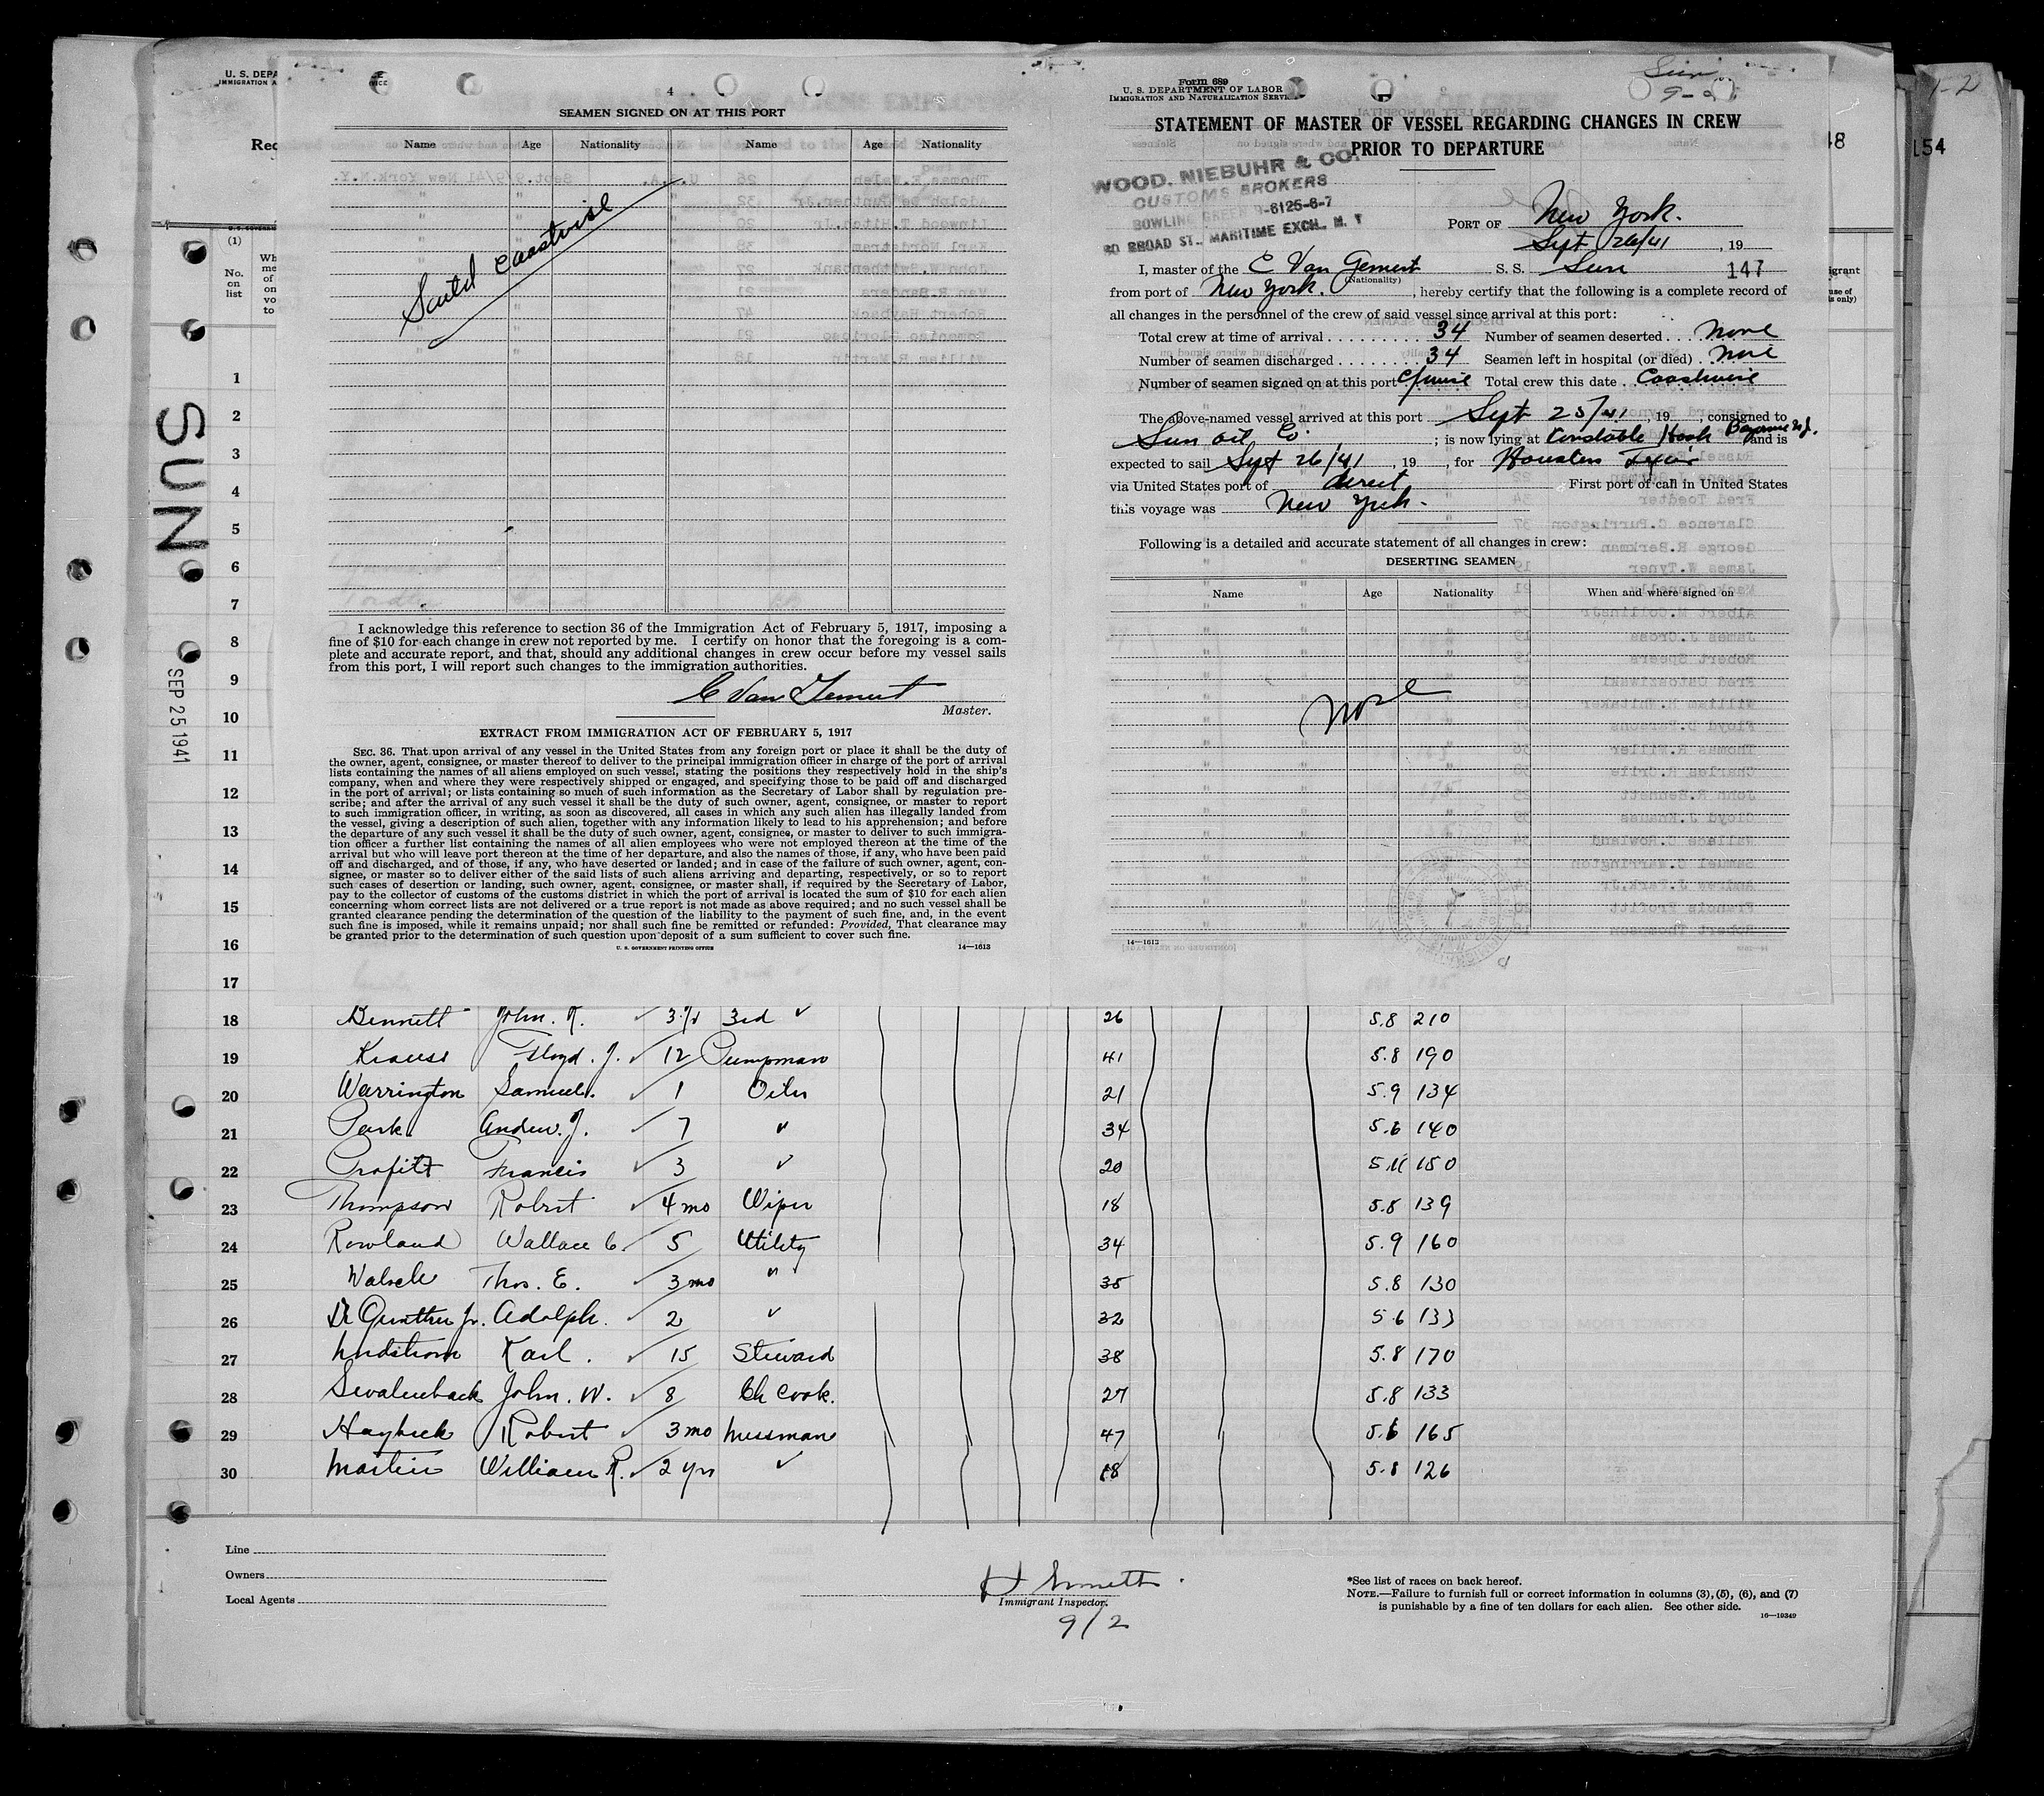 U. S. DEPA
IMMIGRATION A
Rec
(1)
No.
on
list
Wh
me
of
on
vo
to
SUN
SEP 25 1941
4
SEAMEN SIGNED ON AT THIS PORT
Name Age Nationality Name Age Nationality
Sailed Coastwise
I acknowledge this reference to section 36 of the Immigration Act of February 5, 1917, imposing a
fine of $10 for each change in crew not reported by me. I certify on honor that the foregoing is a com-
plete and accurate report, and that, should any additional changes in crew occur before my vessel sails
from this port, I will report such changes to the immigration authorities.
C Van Gemert
Master.
EXTRACT FROM IMMIGRATION ACT OF FEBRUARY 5, 1917
SEC. 36. That upon arrival of any vessel in the United States from any foreign port or place it shall be the duty of
the owner, agent, consignee, or master thereof to deliver to the principal immigration officer in charge of the port of arrival
lists containing the names of all aliens employed on such vessel, stating the positions they respectively hold in the ship's
company, when and where they were respectively shipped or engaged, and specifying those to be paid off and discharged
in the port of arrival; or lists containing so much of such information as the Secretary of Labor shall by regulation pre-
scribe; and after the arrival of any such vessel it shall be the duty of such owner, agent, consignee, or master to report
to such immigration officer, in writing, as soon as discovered, all cases in which any such alien has illegally landed from
the vessel, giving a description of such alien, together with any information likely to lead to his apprehension; and before
the departure of any such vessel it shall be the duty of such owner, agent, consignee, or master to deliver to such immigra-
tion officer a further list containing the names of all alien employees who were not employed thereon at the time of the
arrival but who will leave port thereon at the time of her departure, and also the names of those, if any, who have been paid
off and discharged, and of those, if any, who have deserted or landed; and in case of the failure of such owner, agent, con-
signee, or master so to deliver either of the said lists of such aliens arriving and departing, respectively, or so to report
such cases of desertion or landing, such owner, agent, consignee, or master shall, if required by the Secretary of Labor,
pay to the collector of customs of the customs district in which the port of arrival is located the sum of $10 for each alien
concerning whom correct lists are not delivered or a true report is not made as above required; and no such vessel shall be
granted clearance pending the determination of the question of the liability to the payment of such fine, and, in the event
such fine is imposed, while it remains unpaid; nor shall such fine be remitted or refunded: Provided, That clearance may
be granted prior to the determination of such question upon deposit of a sum sufficient to cover such fine.
U. S. GOVERNMENT PRINTING OFFICE 14—1613
Form 689
U. S. DEPARTMENT OF LABOR
IMMIGRATION AND NATURALIZATION SERVICE
Sun
STATEMENT OF MASTER OF VESSEL REGARDING CHANGES IN CREW
PRIOR TO DEPARTURE
WOOD, NIEBUHR & CO.
CUSTOMS BROKERS
BOWLING GREEN 9-6125-6-7
80 BROAD ST., MARITIME EXCH., N. Y
PORT OF New York.
Sept 26/41, 19
I, master of the C Van Gemert S. S. Sun 147
(Nationality)
from port of New York., hereby certify that the following is a complete record of
all changes in the personnel of the crew of said vessel since arrival at this port:
Total crew at time of arrival 34 Number of seamen deserted None
Number of seamen discharged 34 Seamen left in hospital (or died) None
Number of seamen signed on at this port C/wise Total crew this date Coastwise
The above-named vessel arrived at this port Sept 25/41, 19, consigned to
Sun Oil Co; is now lying at Constable Hook Bayonne N.J. and is
expected to sail Sept 26/41, 19, for Houston Texas
via United States port of direct First port of call in United States
this voyage was New York.
Following is a detailed and accurate statement of all changes in crew:
DESERTING SEAMEN
Name Age Nationality When and where signed on
None
14—1612
48
154
1-2
igrant
use of
is only)
1
2
3
4
5
6
7
8
9
10
11
12
13
14
15
16
17
18 Bennett John. R. 3 Yr 3rd " 26 5.8 210
19 Krauss Floyd. J. 12 Pumpman 41 5.8 190
20 Warrington Samuel. 1 Oiler 21 5.9 134
21 Park. Andew. J. 7 " 34 5.6 140
22 Profitt Francis 3 " 20 5.11 150
23 Thompson Robert 4 mo Wiper 18 5.8 139
24 Rowland Wallace C. 5 Utility 34 5.9 160
25 Walsh Thos. E. 3 mo " 35 5.8 130
26 De Gunther Jr. Adolph. 2 " 32 5 6 133
27 Nordstrom Karl. 15 Steward 38 5.8 170
28 John. W. 8 Ch Cook. 27 5.8 133
29 Hayback Robert 3 mo Messman 47 5.6 165
30 Martin William R. 2 yrs " 18 5.8 126
Line
Owners
Local Agents
Immigrant Inspector.
9/2
*See list of races on back hereof.
NOTE.—Failure to furnish full or correct information in columns (3), (5), (6), and (7)
is punishable by a fine of ten dollars for each alien. See other side.
16—19349